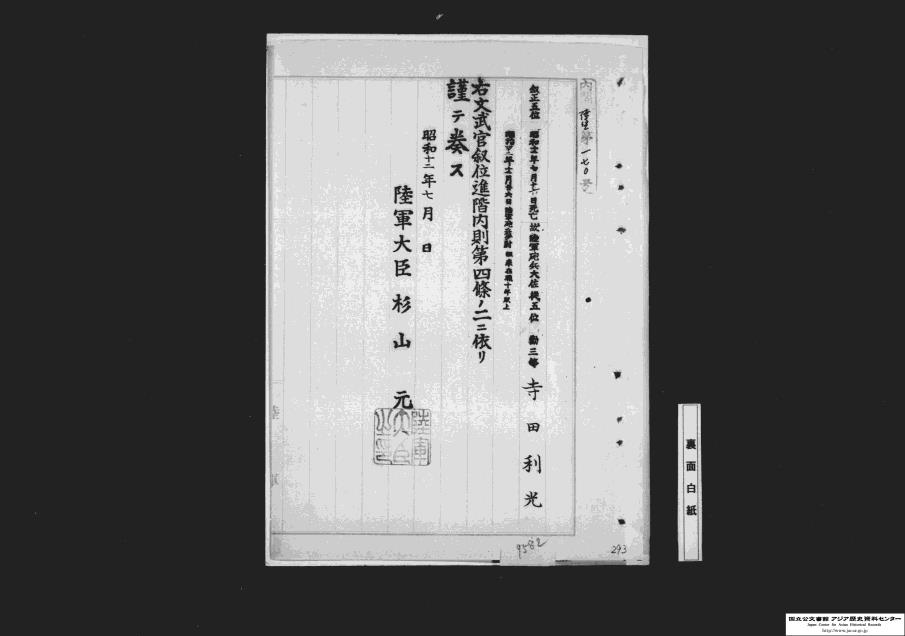 内閣 陸普第一七〇号
叙正五位 昭和十二年七月十一日死亡 故陸軍砲兵大佐 従五位 勲三等 寺田利光
右文武官叙位進階内則第四條ノ二ニ依リ
謹テ奏ス
昭和十二年七月 日
陸軍大臣 杉山 元
陸軍大臣之印
9582
293
裏面白紙
国立公文書館 アジア歴史資料センター
Japan Center for Asian Historical Records
http://www.jacar.go.jp